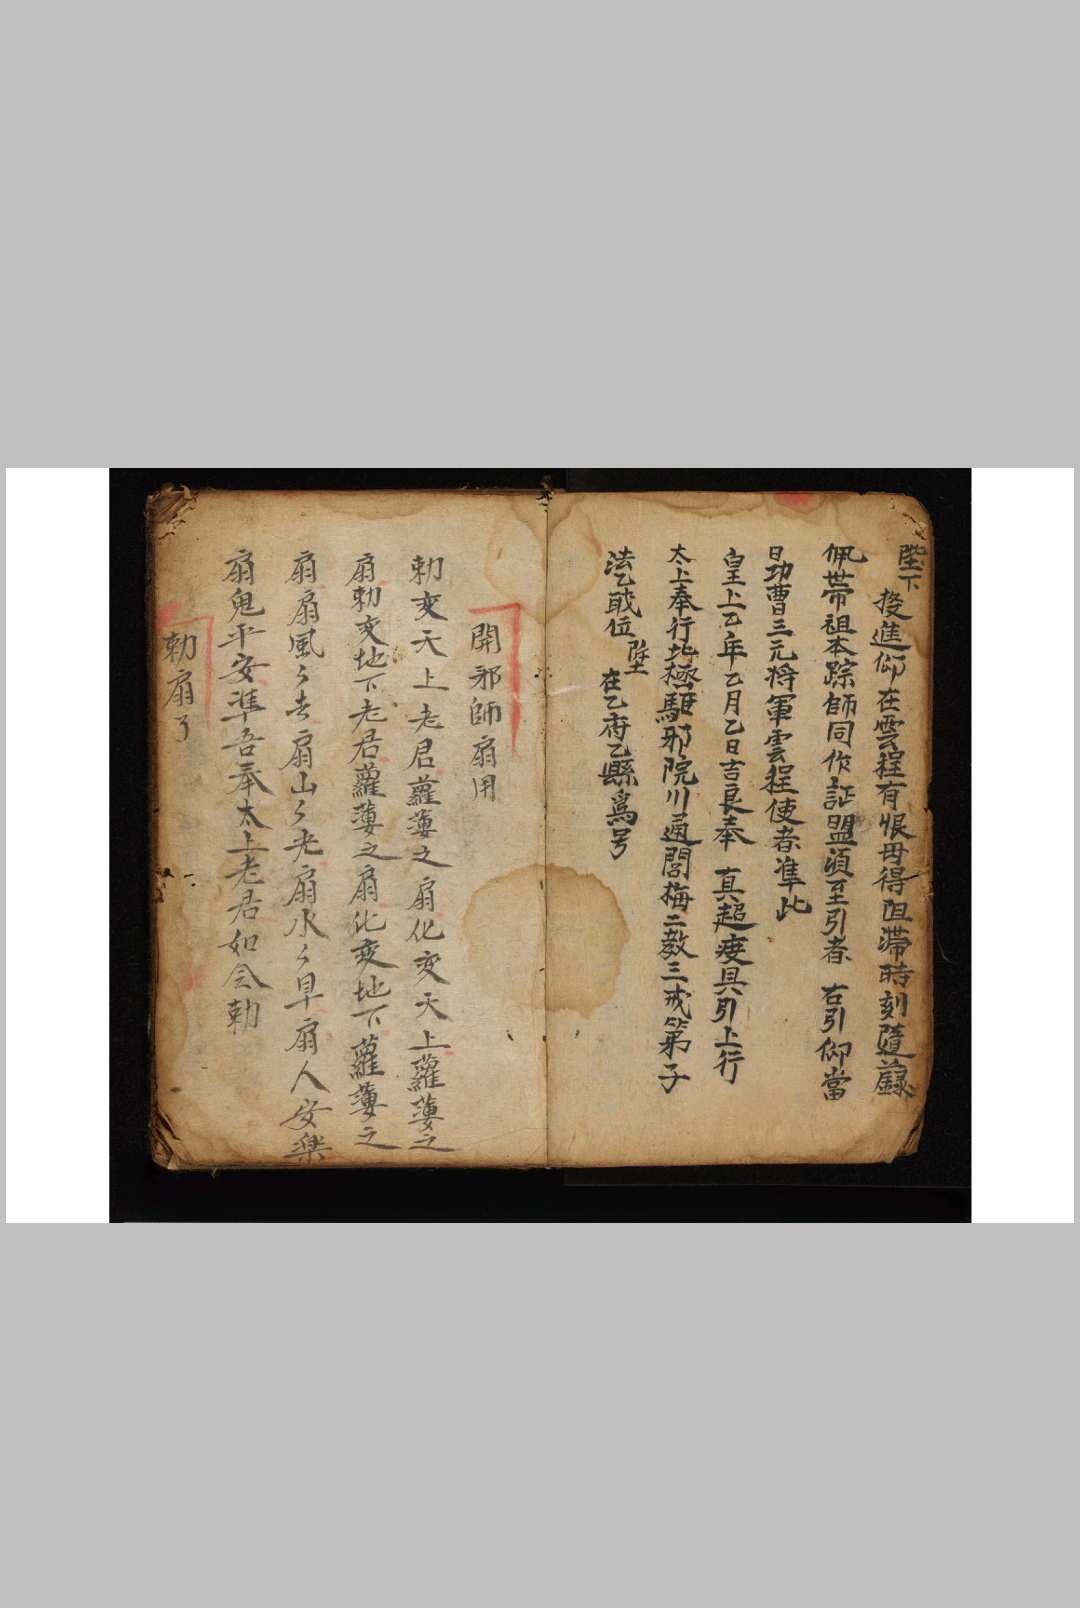 陛下
投進仰在雲程有恨毋得阻滯時刻隨籙
佩帶祖本踪師同作証盟湏至引者 右引仰當
日功曹三元将軍雲程使者準此
皇上乙年乙月乙日吉良奉 真超度具引上行
太上奉行北極驅邪院川通閭梅二教三戒第子
法乙戝位陞
在乙府乙縣爲号
開邪師扇用
勅変天上老君蘿薸之扇化変天上蘿薸之
扇勅変地下老君蘿薸之扇化変地下蘿薸之
扇扇風〻去扇山〻光扇水〻早扇人安樂
扇鬼平安準吾奉太上老君如令勅
勅扇了